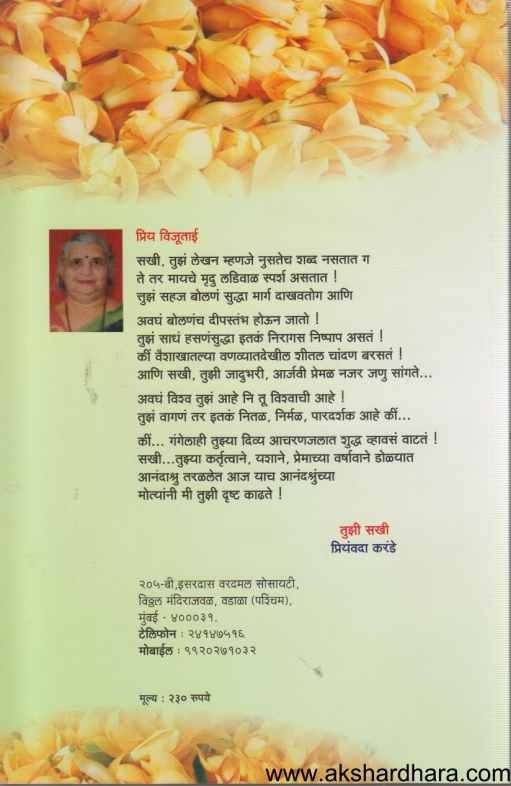 प्रिय विजूताई
सखी, तुझं लेखन म्हणजे नुसतेच शब्द नसतात ग
ते तर मायचे मृदु लडिवाळ स्पर्श असतात !
तुझं सहज बोलणं सुद्धा मार्ग दाखवतोग आणि
अवघं बोलणंच दीपस्तंभ होऊन जातो !
तुझं साधं हसणंसुद्धा इतकं निरागस निष्पाप असतं !
कीं वैशाखातल्या वणव्यातदेखील शीतल चांदण बरसतं !
आणि सखी, तुझी जादुभरी, आर्जवी प्रेमळ नजर जणु सांगते...
अवघं विश्व तुझं आहे नि तू विश्वाची आहे !
तुझं वागणं तर इतकं नितळ, निर्मळ, पारदर्शक आहे कीं...
कीं... गंगेलाही तुझ्या दिव्य आचरणजलात शुद्ध व्हावसं वाटतं !
सखी...तुझ्या कर्तृत्वाने, यशाने, प्रेमाच्या वर्षावाने डोळ्यात
आनंदाश्रु तरळलेत आज याच आनंदश्रुंच्या
मोत्यांनी मी तुझी दृष्ट काढते !
तुझी सखी
प्रियंवदा करंडे
२०५-बी,इसरदास वरदमल सोसायटी,
विठ्ठल मंदिराजवळ, वडाळा (पश्चिम),
मुंबई - ४०००३१.
टेलिफोन : २४१४७५१६
मोबाईल : ९९२०२७१०३२
मूल्य : २३० रुपये
www.akshardhara.com